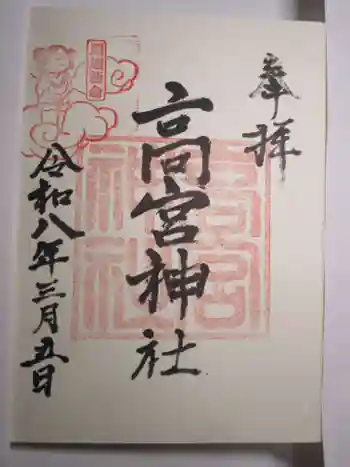 奉拝
高宮神社
令和八年三月五日
高宮
神社